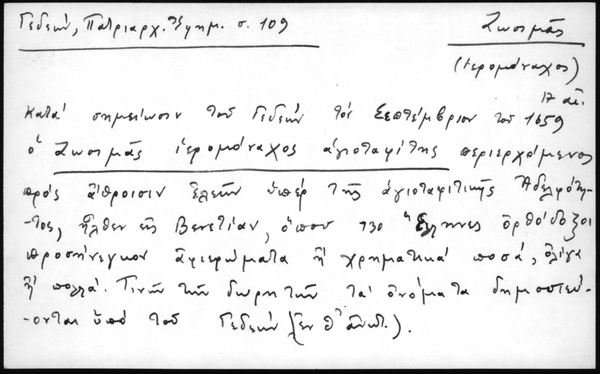 Γεδεών, Πατριαρχ. Ἐφημ. σ. 109
Ζωσιμᾶς
(ἱερομόναχος)
17 αἰ.
Κατά σημείωσιν τοῦ Γεδεών τόν Σεπτέμβριον τοῦ 1659
ὁ Ζωσιμᾶς ἱερομόναχος ἁγιοταφίτης περιερχόμενος
πρός ἄθροισιν ἐλεῶν ὑπέρ τῆς ἁγιοταφιτικῆς Ἀδελφότη-
τος, ἦλθεν εἰς Βενετίαν, ὅπου 130 Ἕλληνες ὀρθόδοξοι
προσήνεγκον ἀφιερώματα ἤ χρηματικά ποσά, ὀλίγα
ἤ πολλά. Τινῶν τῶν δωρητῶν τά ὀνόματα δημοσιεύ-
-ονται ὑπό τοῦ Γεδεών (ἐν θ' ἀνωτ.).